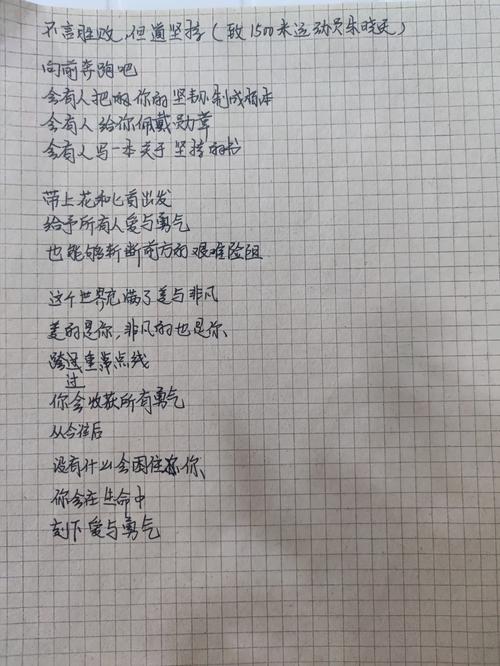 不言胜败，但道坚持（致1500米运动员朱晓天）
向前奔跑吧
会有人把你的坚韧制成标本
会有人给你佩戴勋章
会有人写一本关于坚持的书
带上花和匕首出发
给予所有人爱与勇气
也能够斩断前方的艰难险阻
这个世界充满了美与非凡
美的是你，非凡的也是你
跨过重点线
你会收获所有勇气
从今往后
没有什么会困住你
你会在生命中
刻下爱与勇气